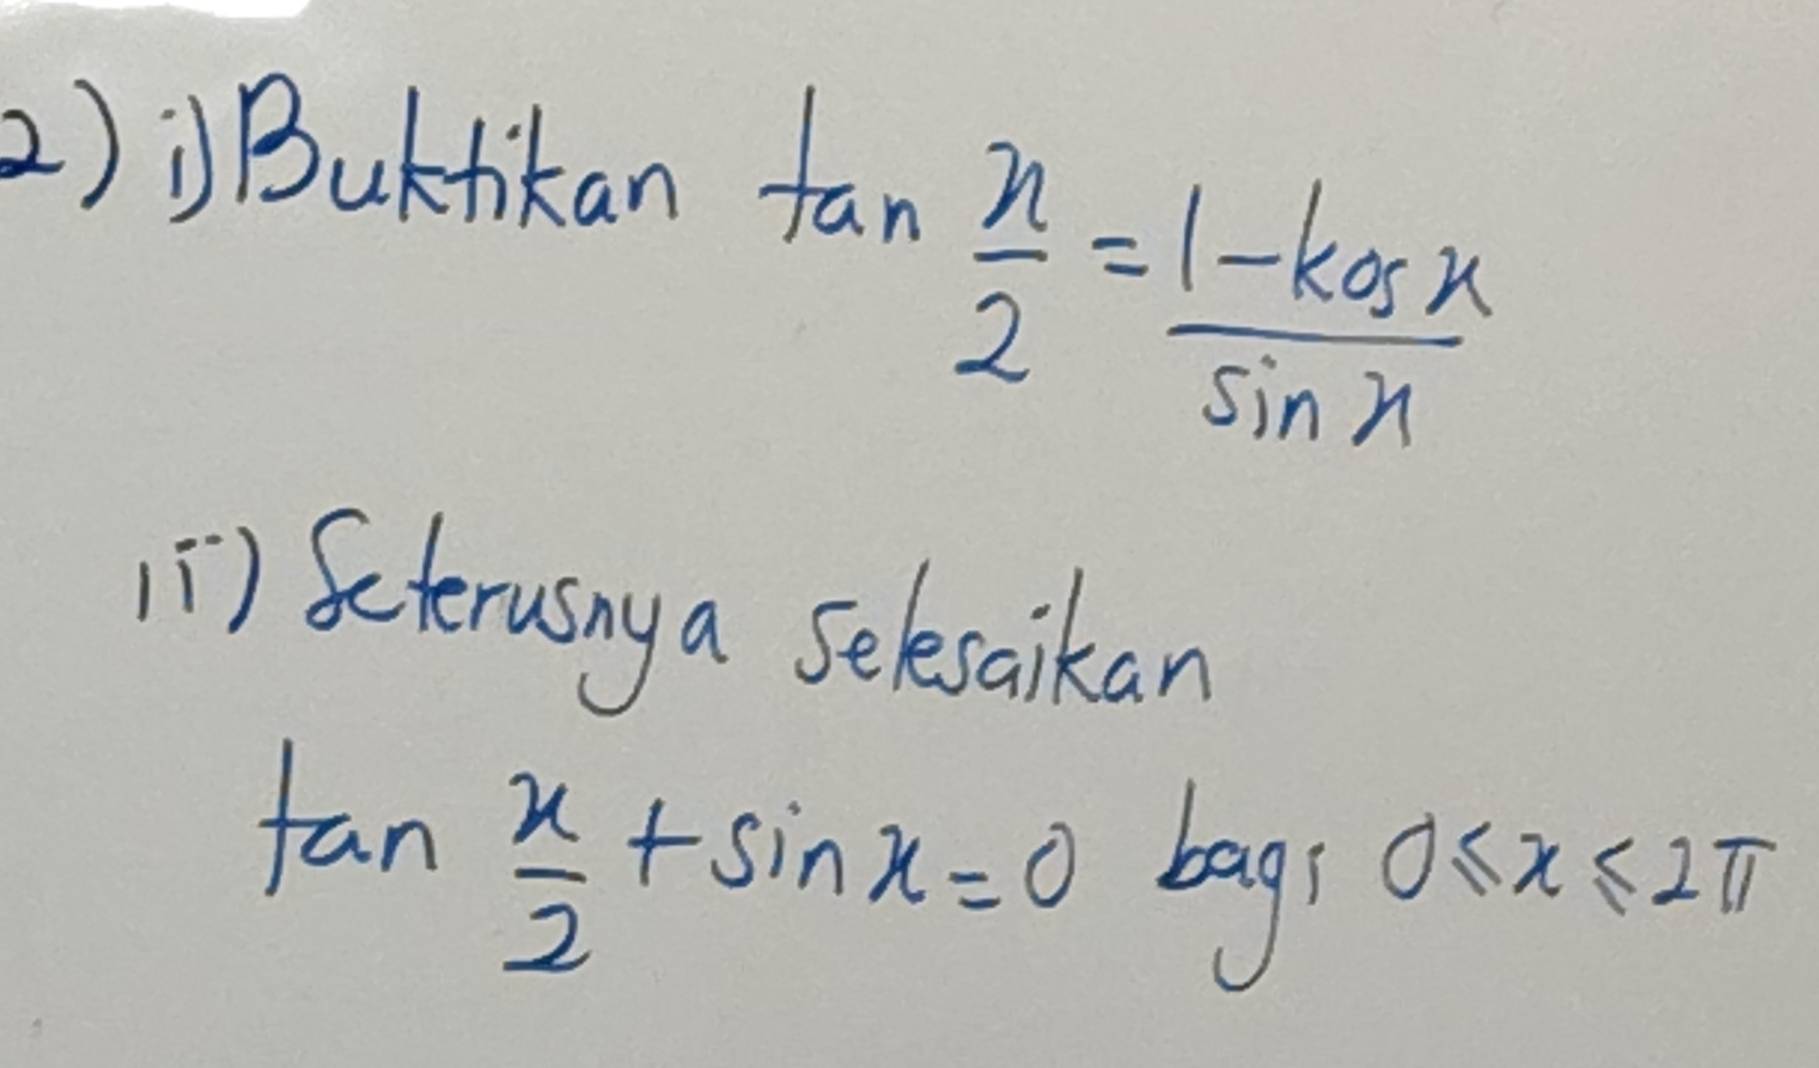 2) i) Buktikan tan x/2 = 1-kos x / sin x
ii) Seterusnya selesaikan
tan x/2 + sin x = 0 bagi 0 ⩽ x ⩽ 2π